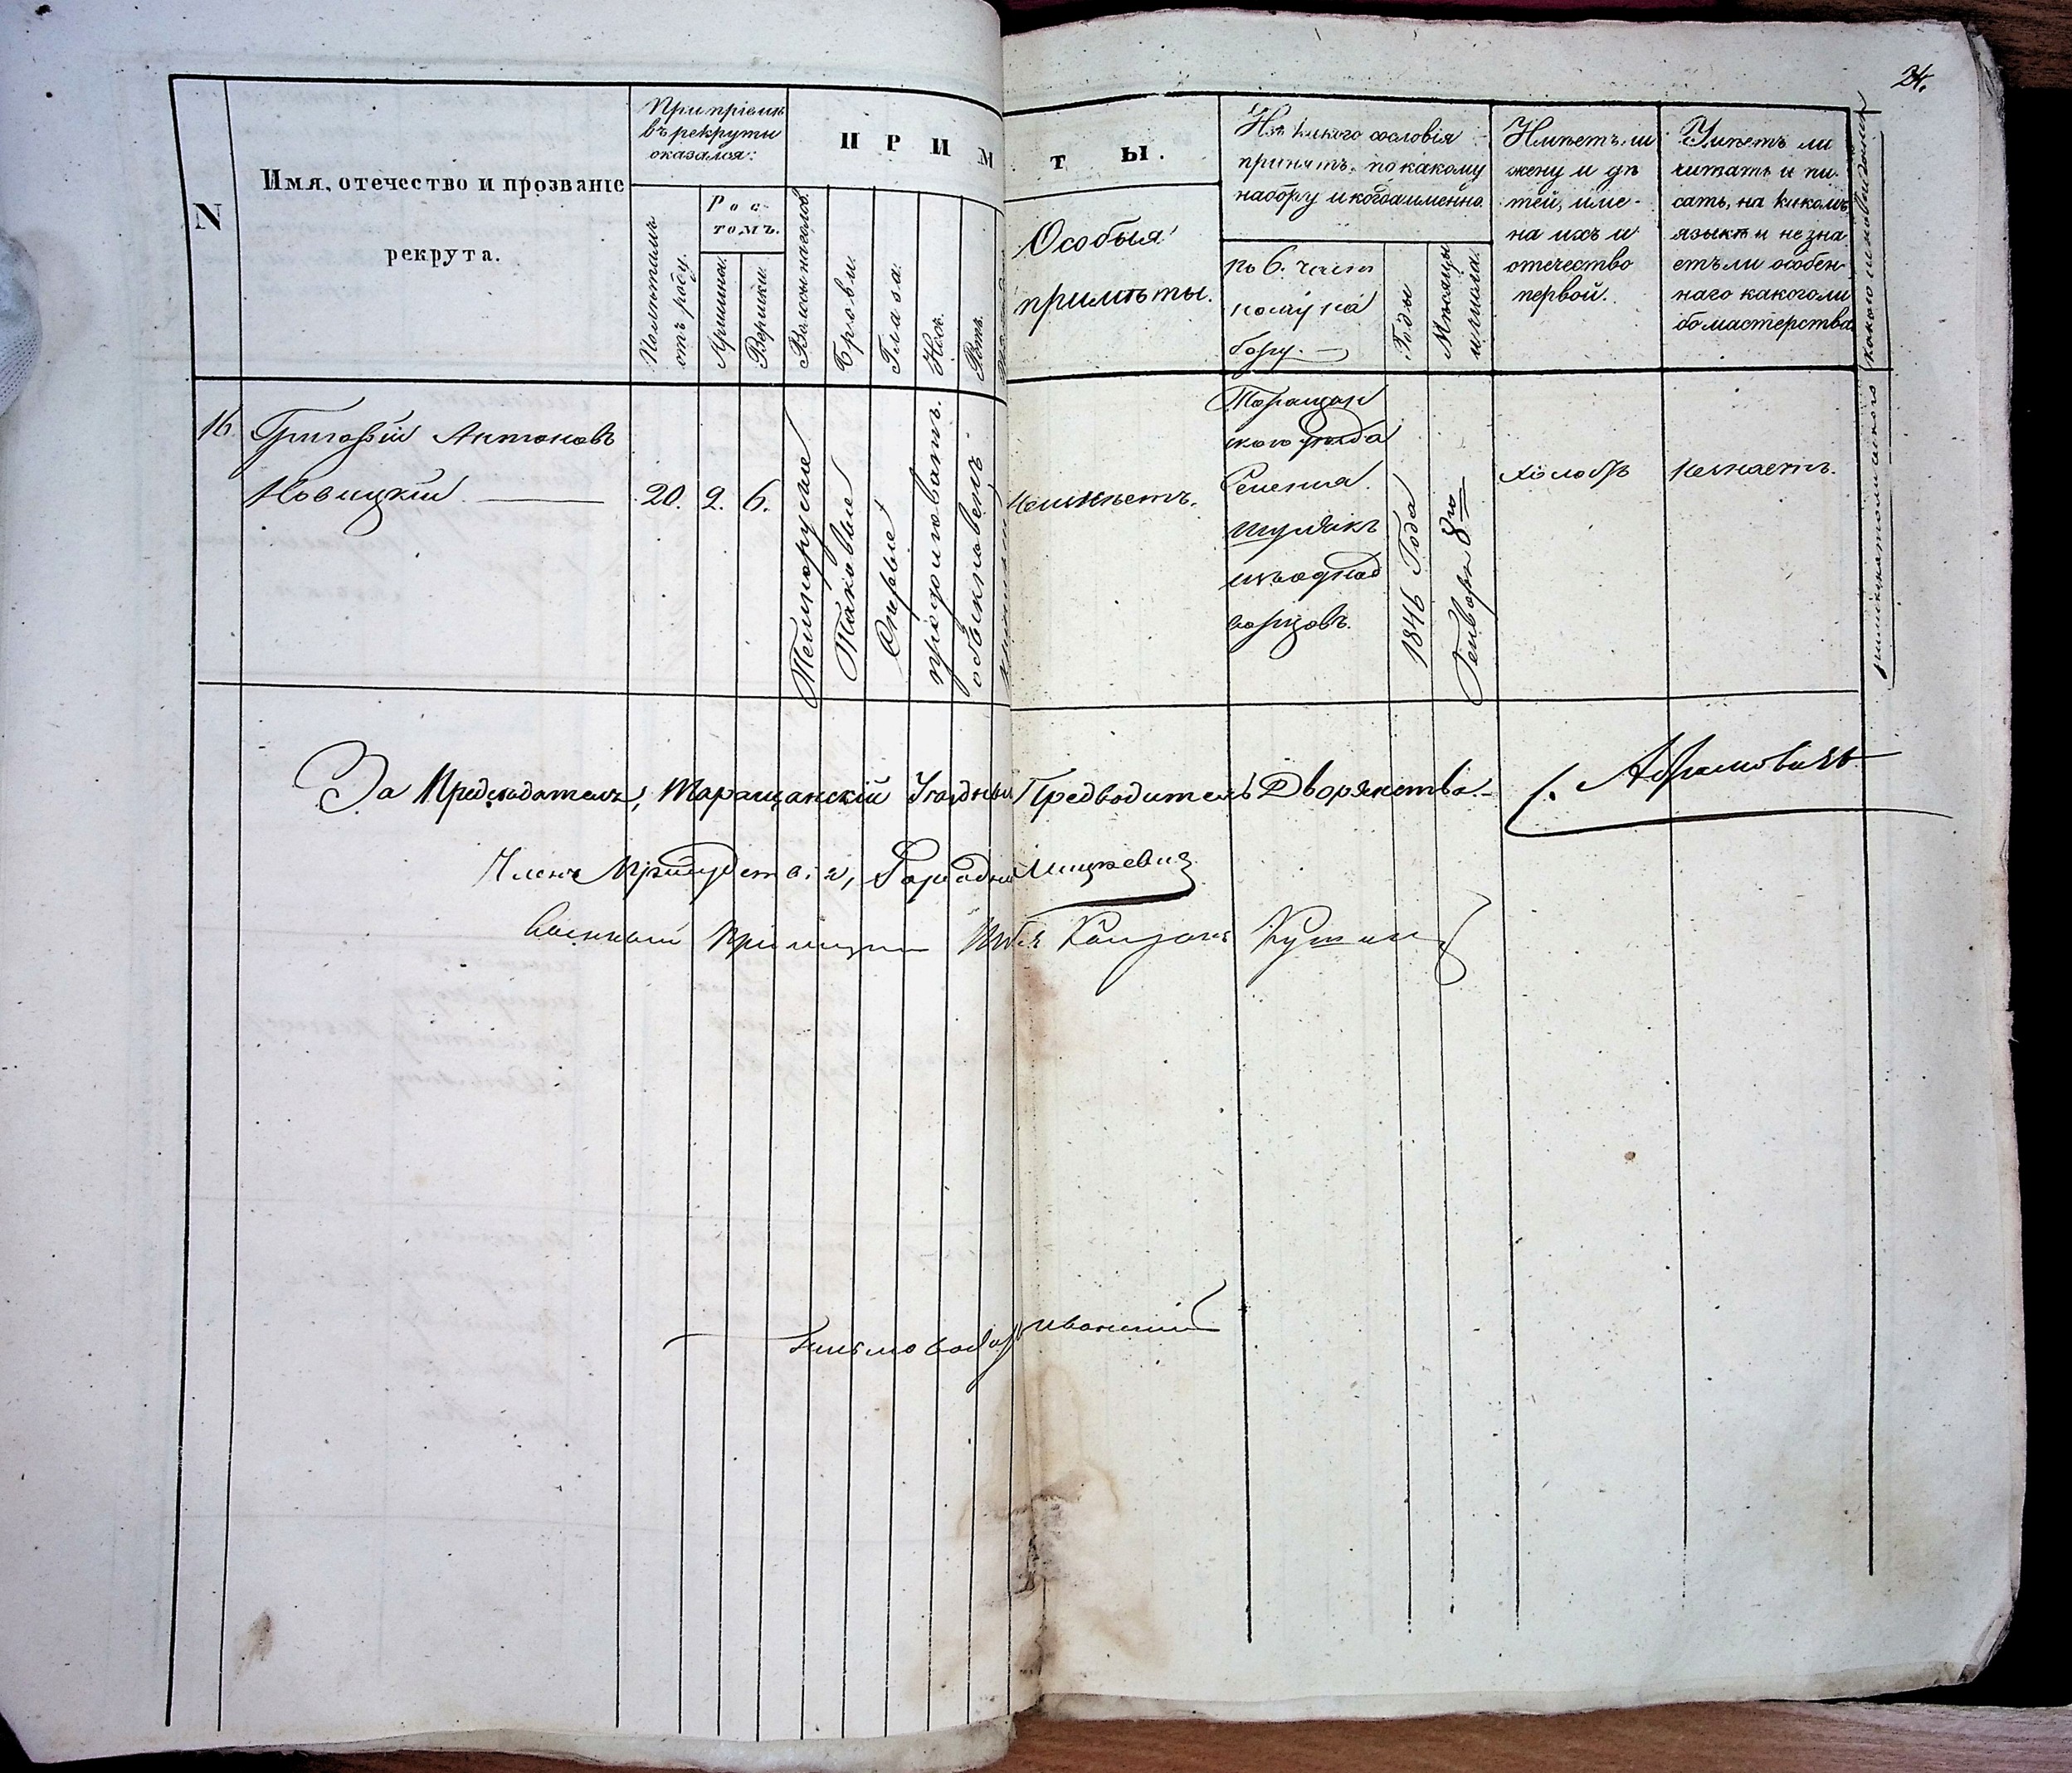 24.
N
Имя, отечество и прозваніе
рекрута.
При пріемѣ
въ рекруты
оказался:
Полѣтамъ
отъ роду.
Рос-
томъ.
Аршины.
Вершки.
ПРИМ
ТЫ.
Волосы на голов.
Брови.
Глаза.
Носъ.
Ротъ.
Особыя
примѣты.
Изъ какого сословія
принятъ, по какому
набору и когда именно.
по 6. част
ному на
бору.
Годы
Мѣсяцы
и числа.
Имѣетъ ли
жену и дѣ
тей, име-
на ихъ и
отечество
первой.
Умѣетъ ли
читать и пи-
сать, на какомъ
языкѣ и не зна
етъ ли особен-
наго какого ли
бо мастерства
какого исповѣданія
римскокатолическаго
16.
Григорій Антоновъ
Новицкій
20.
2.
6.
Темнорусые
Таковые
Сѣрые
продолговатъ.
обыкновенъ
неимѣетъ.
Таращан
ского уѣзда
Селенія
изъ однод
ворцовъ.
1846 Года
Генваря 8го
холостъ
незнаетъ.
За Предсѣдателя, Таращанскій Уѣздный Предводитель Дворянства. Абрамовичъ
Членъ Присудствія, Городничій Мицкевичъ
Военный Пріемщикъ
Письмоводит Иваницкій